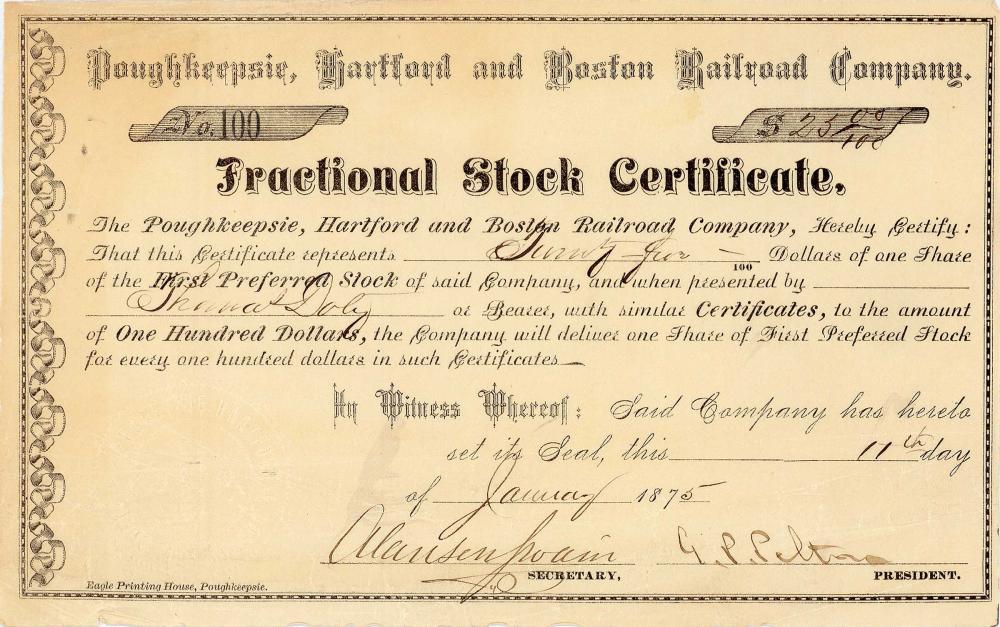 Poughkeepsie, Hartford and Boston Railroad Company.
No. 100 $ 25 00/100
Fractional Stock Certificate,
The Poughkeepsie, Hartford and Boston Railroad Company, Hereby Certify:
That this Certificate represents Twenty five — 100 Dollars of one Share
of the First Preferred Stock of said Company, and when presented by
Thomas Doty or Bearer, with similar Certificates, to the amount
of One Hundred Dollars, the Company will deliver one Share of First Preferred Stock
for every one hundred dollars in such Certificates
In Witness Whereof: Said Company has hereto
set its Seal, this 11th day
of January 1875
Alanson Swain G. P. Pelton
SECRETARY, PRESIDENT.
Eagle Printing House, Poughkeepsie.